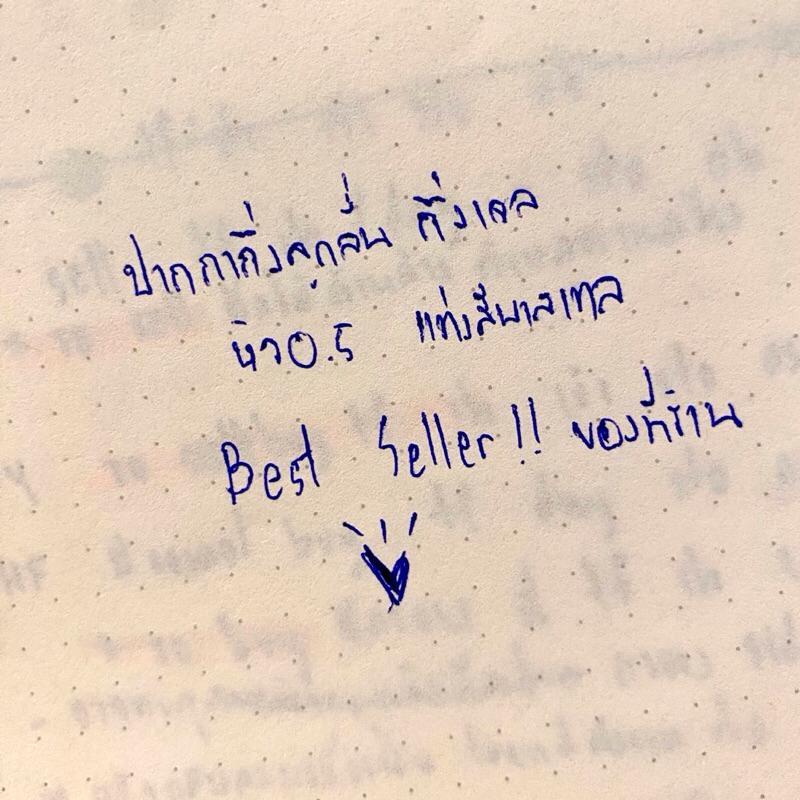 ปากกากึ่งลูกลื่น กึ่งเจล
หัว 0.5 แท่งสีพาสเทล
Best Seller!! ของที่ร้าน